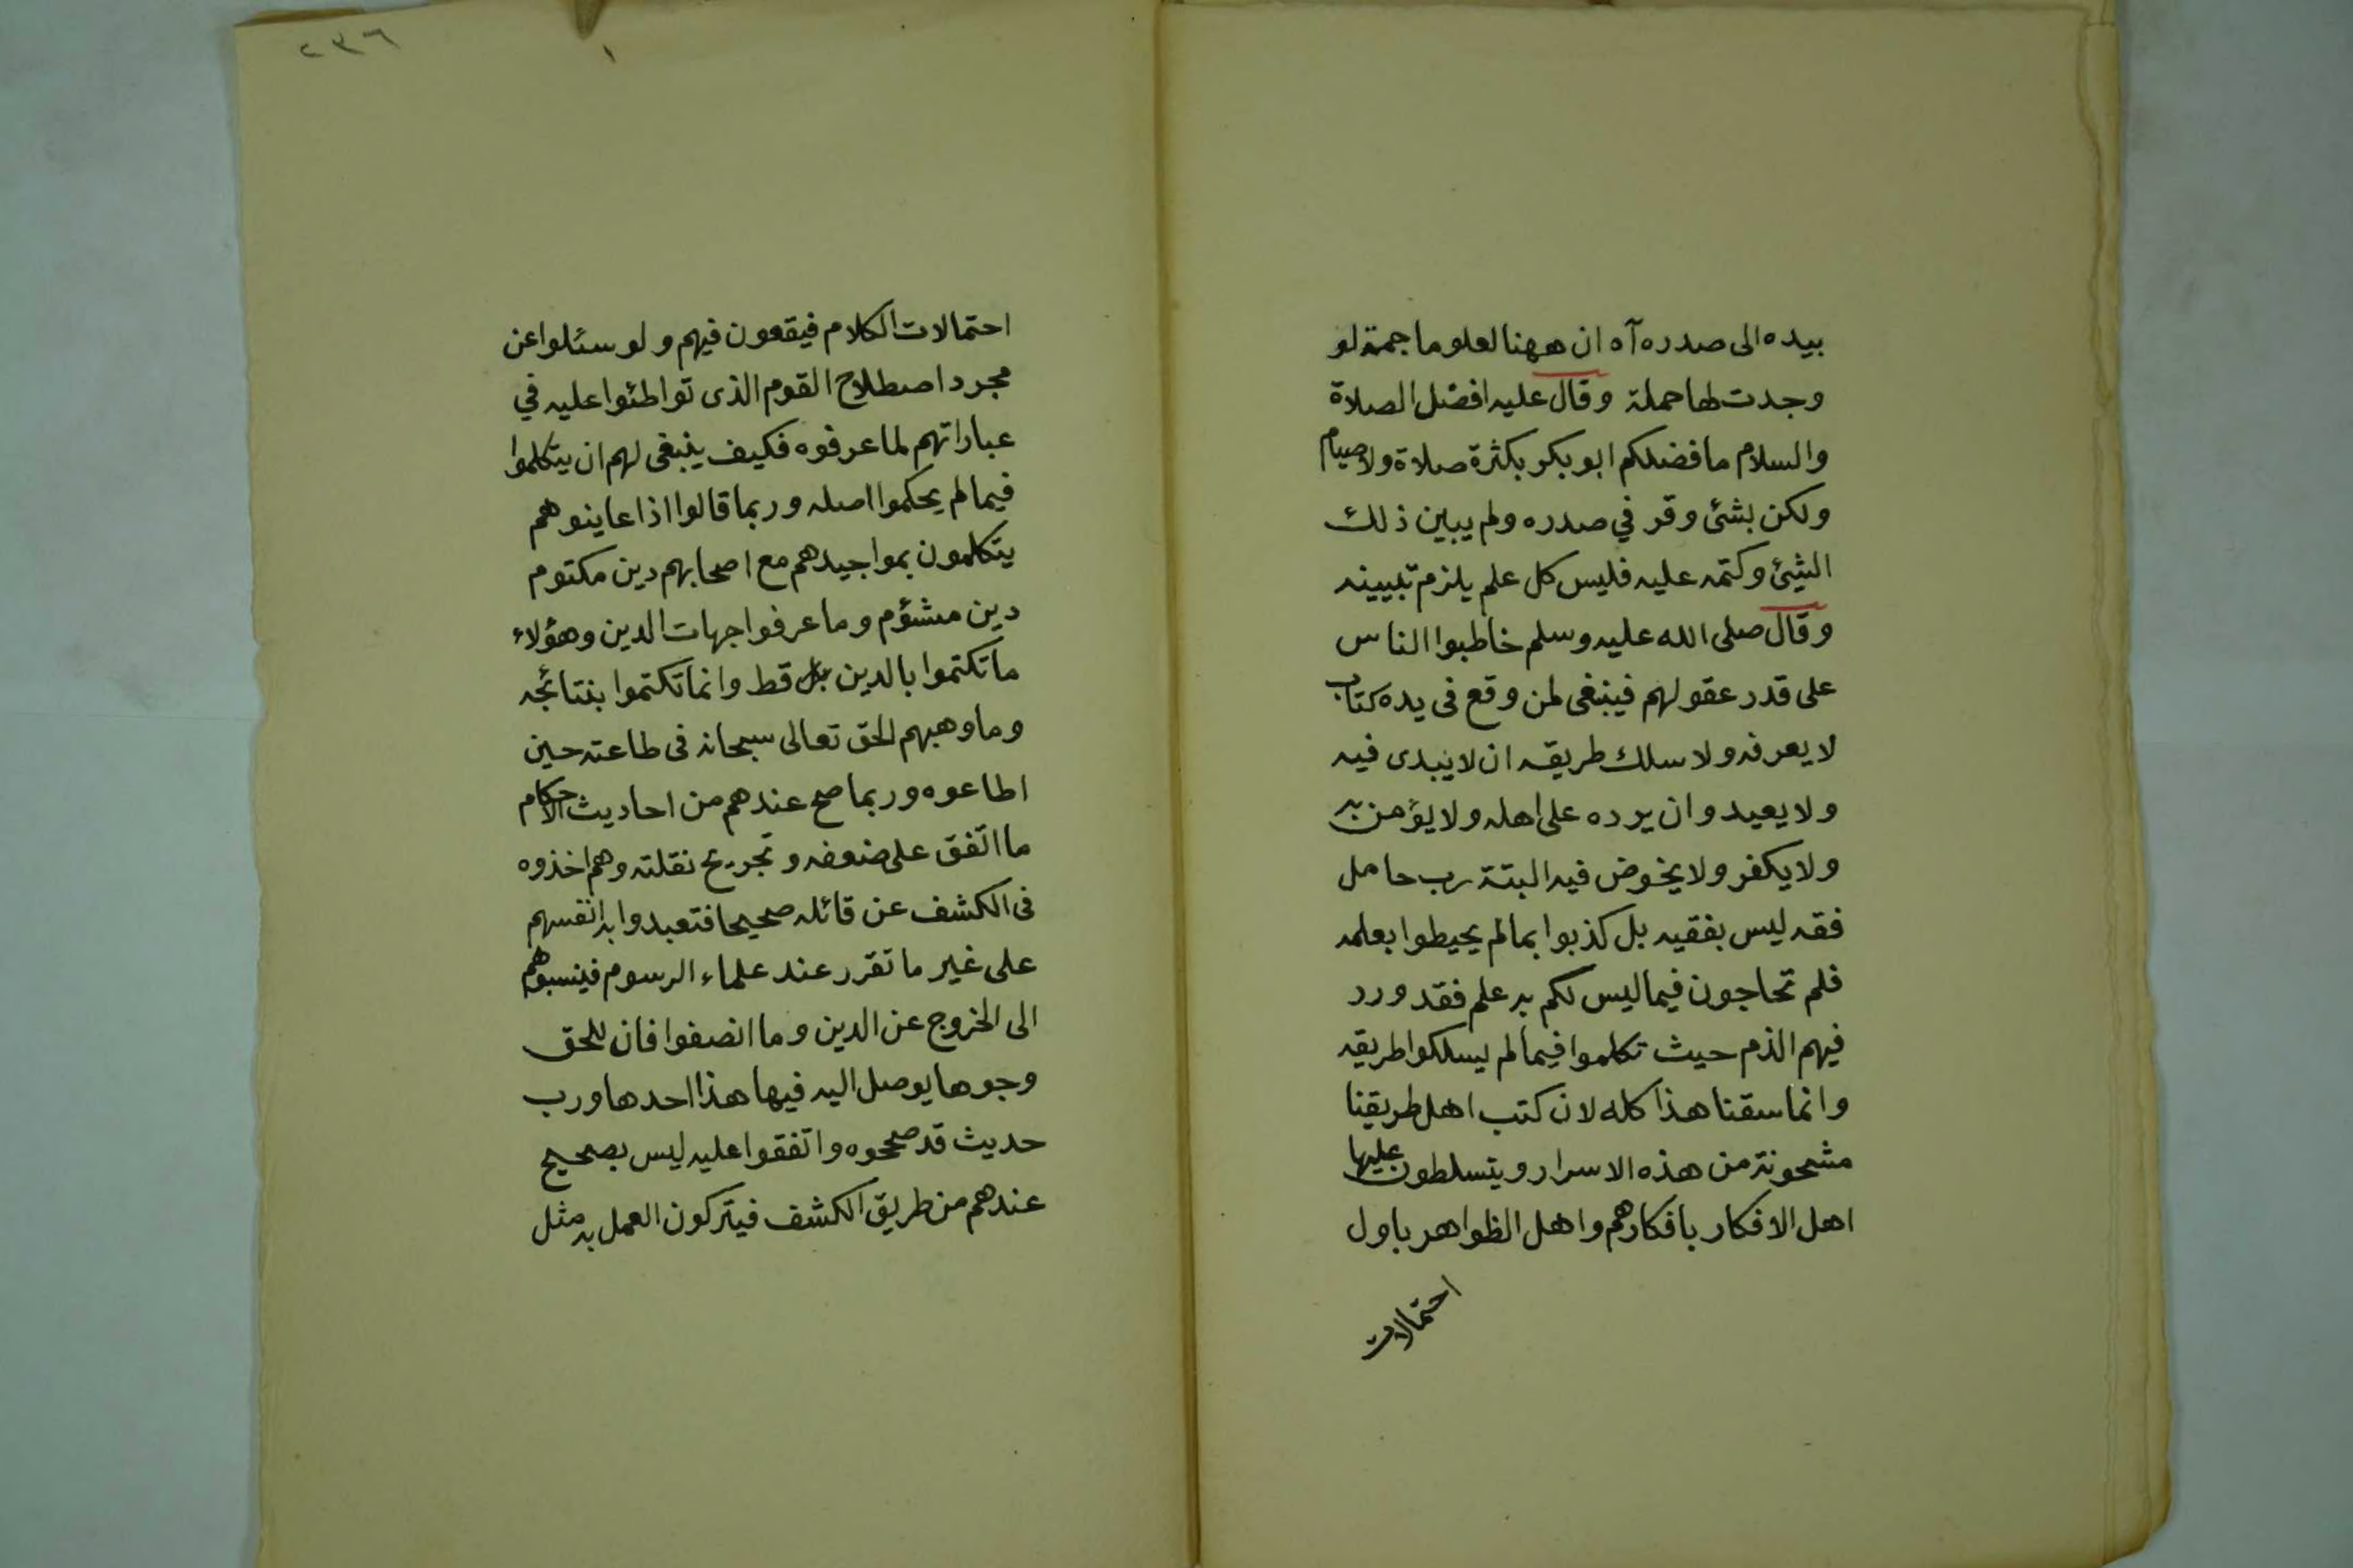 بيده الى صدره آه ان ههنا لعلوما جمة لو
وجدت لها حملة وقال عليه افضل الصلاة
والسلام ما فضلكم ابو بكر بكثرة صلاة ولا صيام
ولكن بشئ وقر في صدره ولم يبين ذلك
الشئ وكتمه عليه فليس كل علم يلزم تبيينه
وقال صلى الله عليه وسلم خاطبوا الناس
على قدر عقولهم فينبغى لمن وقع فى يده كتاب
لا يعرفه ولا سلك طريقه ان لا يبدى فيه
ولا يعيد وان يرده على اهله ولا يؤمن به
ولا يكفر ولا يخوض فيه البتة رب حامل
فقه ليس بفقيه بل كذبوا بما لم يحيطوا بعلمه
فلم تحاجون فيما ليس لكم به علم فقد ورد
فيهم الذم حيث تكلموا فيما لم يسلكوا طريقه
وانما سقنا هذا كله لان كتب اهل طريقنا
مشحونة من هذه الاسرار ويتسلطون عليها
اهل الافكار بافكارهم واهل الظواهر باول
احتمالات
٢٣٦
١
احتمالات الكلام فيقعون فيهم ولو سئلوا عن
مجرد اصطلاح القوم الذى تواطئوا عليه في
عباراتهم لما عرفوه فكيف ينبغى لهم ان يتكلموا
فيما لم يحكموا اصله وربما قالوا اذا عاينوهم
يتكلمون بمواجيدهم مع اصحابهم دين مكتوم
دين مشؤم وما عرفوا جهات الدين وهؤلاء
ما تكتموا بالدين قط وانما تكتموا بنتائجه
وما وهبهم الحق تعالى سبحانه فى طاعته حين
اطاعوه وربما صح عندهم من احاديث الاحكام
ما اتفق على ضعفه وتجريح نقلته وهم اخذوه
فى الكشف عن قائله صحيحا فتعبدوا به انفسهم
على غير ما تقرر عند علماء الرسوم فينسبوهم
الى الخروج عن الدين وما انصفوا فان للحق
وجوها يوصل اليه فيها هذا احدها ورب
حديث قد صححوه واتفقوا عليه ليس بصحيح
عندهم من طريق الكشف فيتركون العمل به مثل